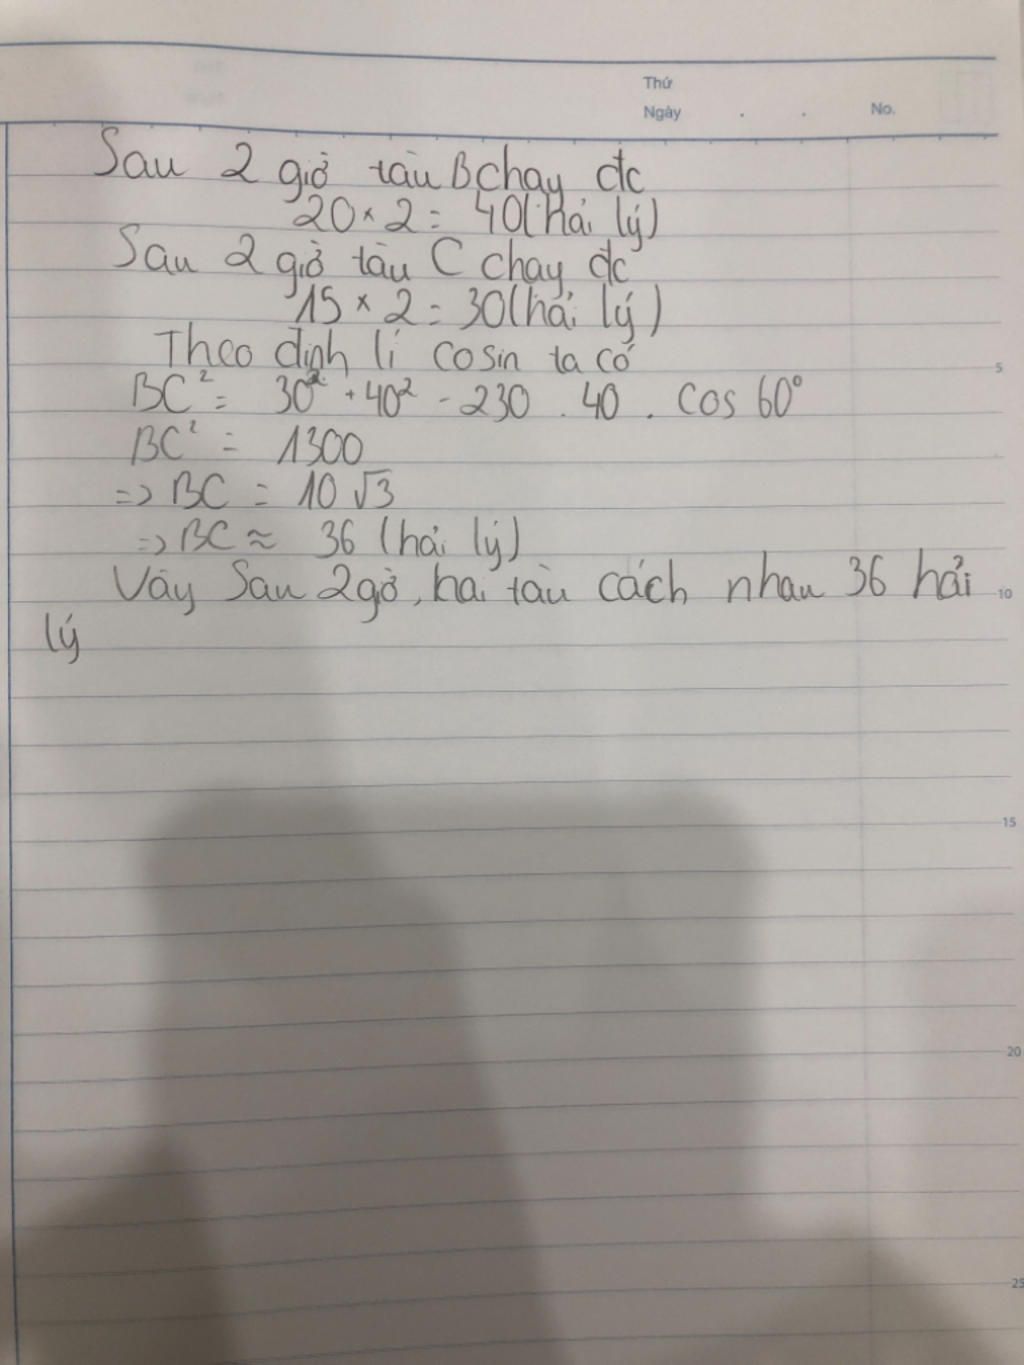 Thứ
Ngày . . No.
Sau 2 giờ tàu B chạy đc
20 × 2 = 40 (hải lý)
Sau 2 giờ tàu C chạy đc
15 × 2 = 30 (hải lý)
Theo định lí cosin ta có
BC² = 30² + 40² - 230 . 40 . cos 60°
BC² = 1300
=> BC = 10 √3
=> BC ≈ 36 (hải lý)
Vậy Sau 2 giờ, hai tàu cách nhau 36 hải
lý
5
10
15
20
25